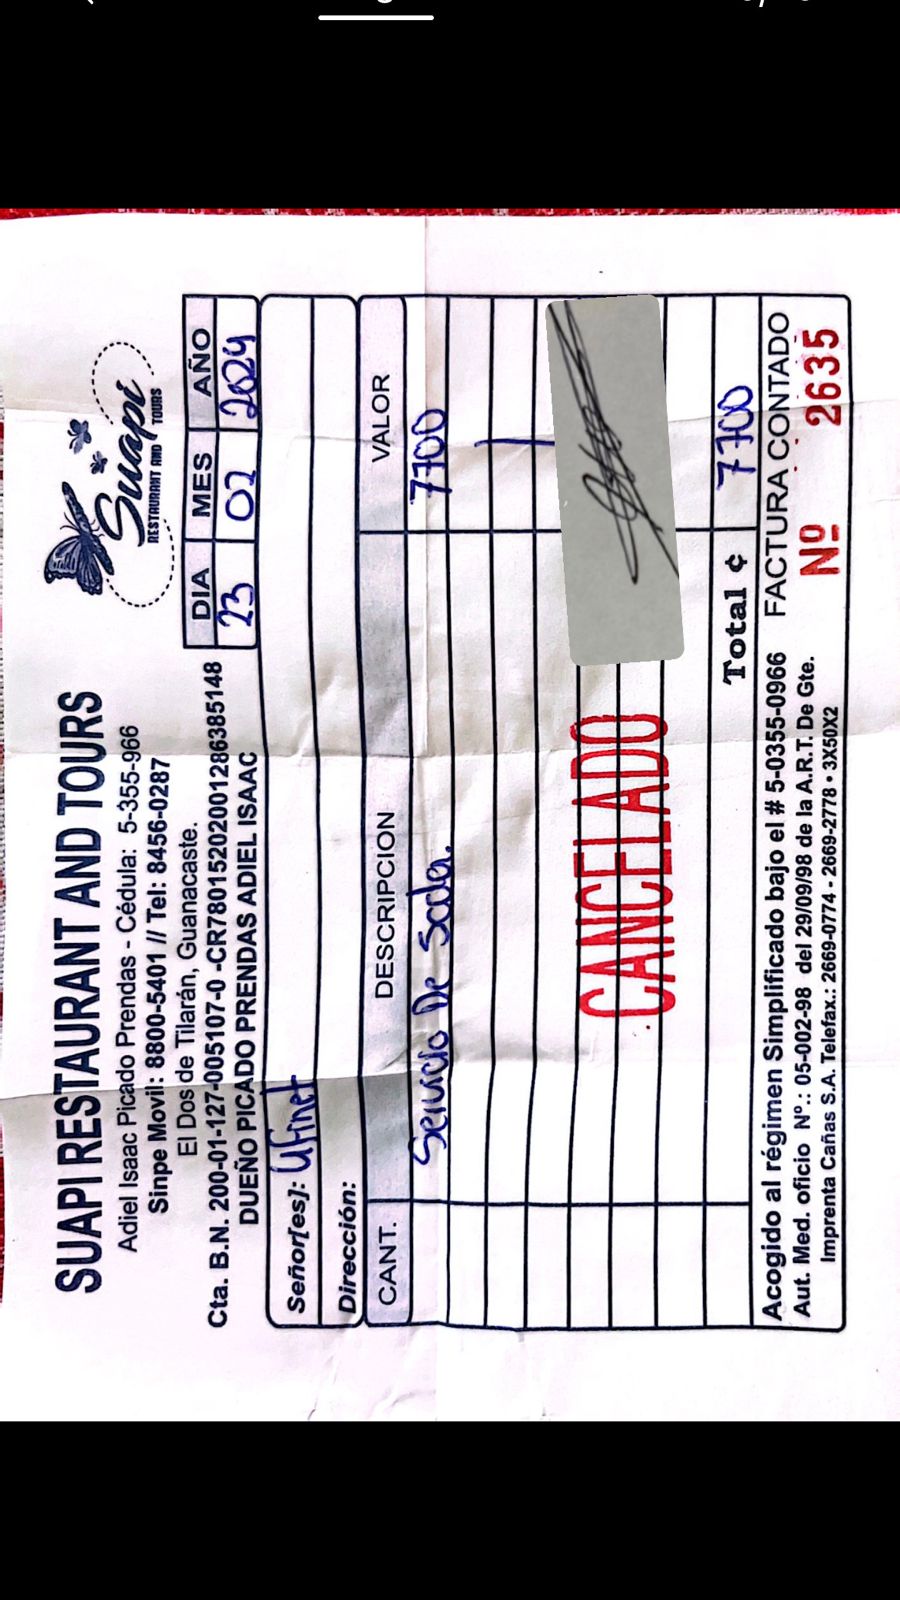 SUAPI RESTAURANT AND TOURS
Adiel Isaac Picado Prendas - Cédula: 5-355-966
Sinpe Movil: 8800-5401 // Tel: 8456-0287
El Dos de Tilarán, Guanacaste.
Cta. B.N. 200-01-127-005107-0 -CR78015202001286385148
DUEÑO PICADO PRENDAS ADIEL ISAAC
Suapi
RESTAURANT AND TOURS
DIA MES AÑO
23 02 2024
Señor[es]: Ufinet
Dirección:
CANT. DESCRIPCION VALOR
Servicio De Soda. 7700
CANCELADO
Total ¢ 7700
Acogido al régimen Simplificado bajo el # 5-0355-0966 FACTURA CONTADO
Aut. Med. oficio Nº.: 05-002-98 del 29/09/98 de la A.R.T. De Gte.
Imprenta Cañas S.A. Telefax.: 2669-0774 - 2669-2778 • 3X50X2
Nº 2635